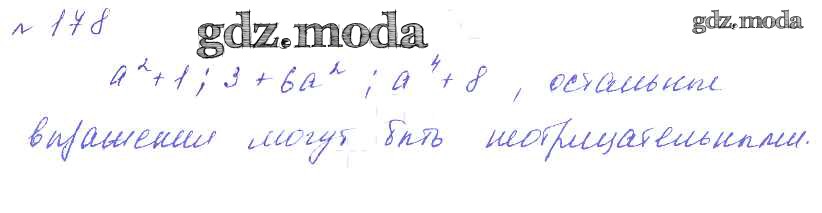 № 178
gdz.moda
gdz.moda
a²+1; 3+6a²; a⁴+8, остальные
выражения могут быть неотрицательными.